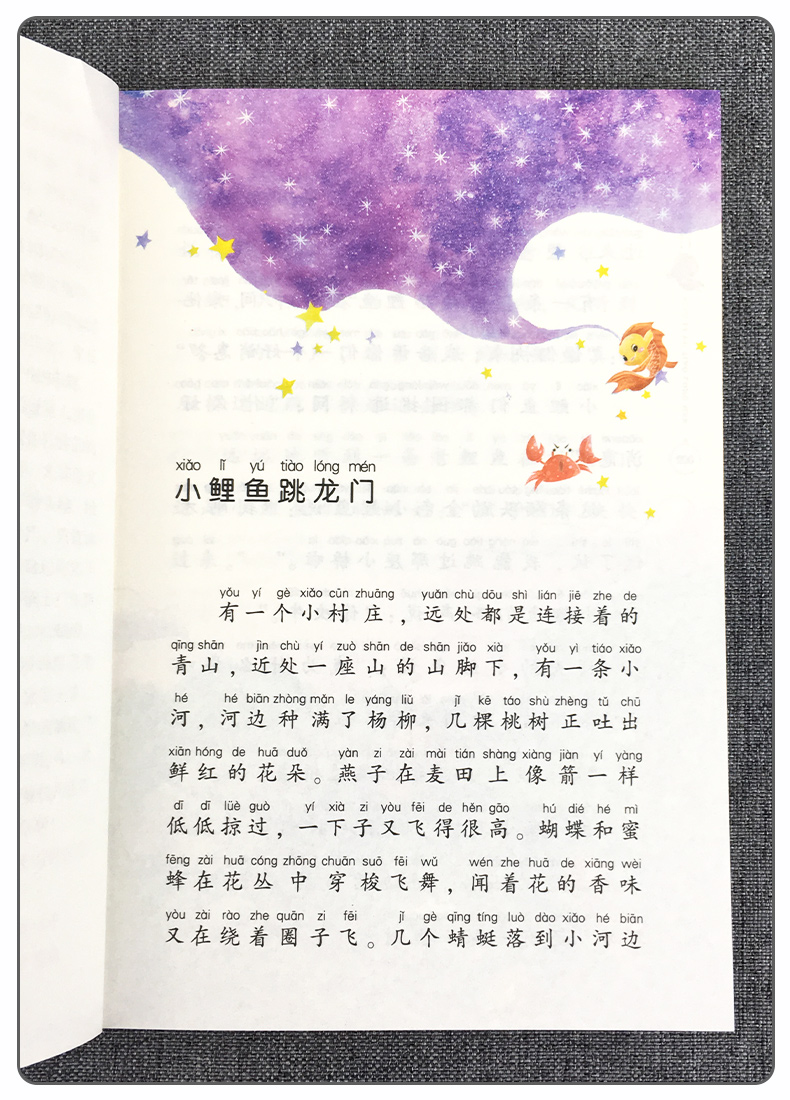 xiǎo lǐ yú tiào lóng mén
小鲤鱼跳龙门
yǒu yí gè xiǎo cūn zhuāng yuǎn chù dōu shì lián jiē zhe de
有一个小村庄，远处都是连接着的
qīng shān jìn chù yí zuò shān de shān jiǎo xià yǒu yì tiáo xiǎo
青山，近处一座山的山脚下，有一条小
hé hé biān zhòng mǎn le yáng liǔ jǐ kē táo shù zhèng tǔ chū
河，河边种满了杨柳，几棵桃树正吐出
xiān hóng de huā duǒ yàn zi zài mài tián shàng xiàng jiàn yí yàng
鲜红的花朵。燕子在麦田上像箭一样
dī dī lüè guò yí xià zi yòu fēi de hěn gāo hú dié hé mì
低低掠过，一下子又飞得很高。蝴蝶和蜜
fēng zài huā cóng zhōng chuān suō fēi wǔ wén zhe huā de xiāng wèi
蜂在花丛中穿梭飞舞，闻着花的香味
yòu zài rào zhe quān zi fēi jǐ gè qīng tíng luò dào xiǎo hé biān
又在绕着圈子飞。几个蜻蜓落到小河边